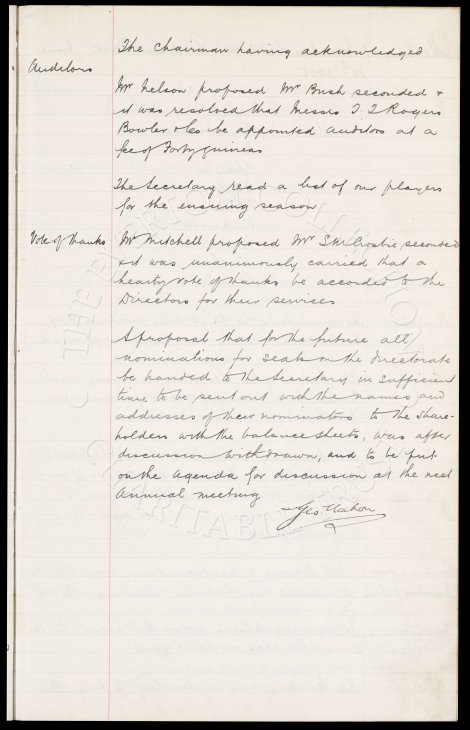 The Chairman having acknowledged
Auditors
Mr Nelson proposed Mr Bush seconded &
it was resolved that Messrs T. T Rogers
Bowler & Co be appointed auditors at a
fee of Forty Guineas
The Secretary read a list of our players
for the ensuing season
Vote of thanks Mr Mitchell proposed Mr seconded
& it was unanimously carried that a
hearty vote of thanks be accorded to the
Directors for their services
A proposal that for the future all
nominations for seats on the directorate
be handed to the Secretary in sufficient
time to be sent out with the names and
addresses of their nominators to the share-
holders with the balance sheets, was after
discussion withdrawn, and to be put
on the Agenda for discussion at the next
Annual meeting
Geo Mahon
THE EVERTON COLLECTION
CHARITABLE TRUST